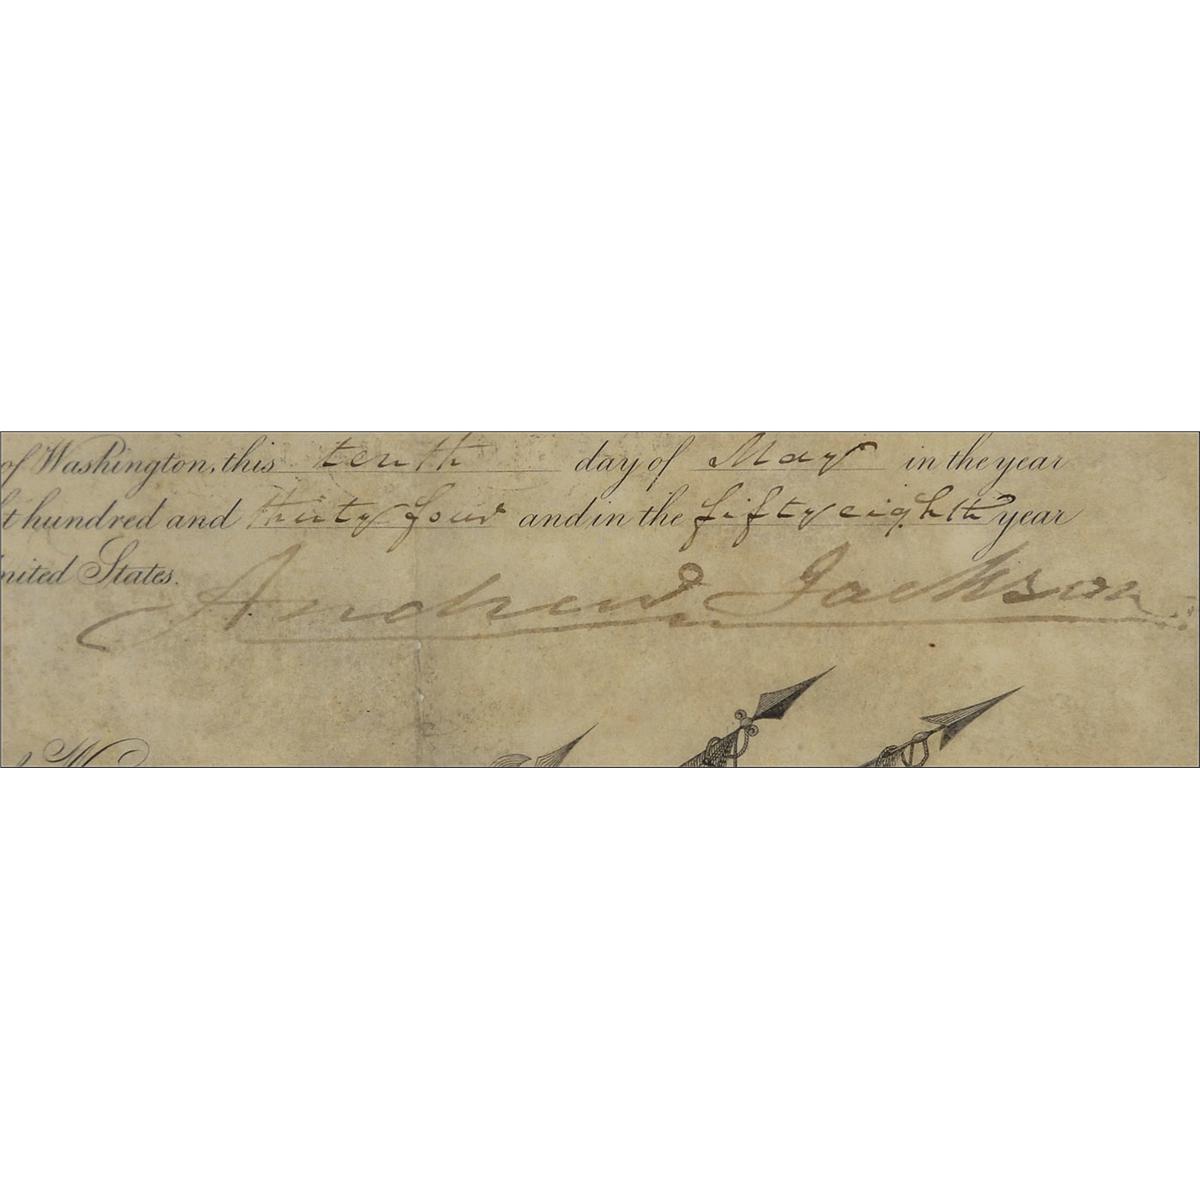 of Washington, this tenth day of May in the year
t hundred and thirty four and in the fifty eighth year
nited States.
Andrew Jackson